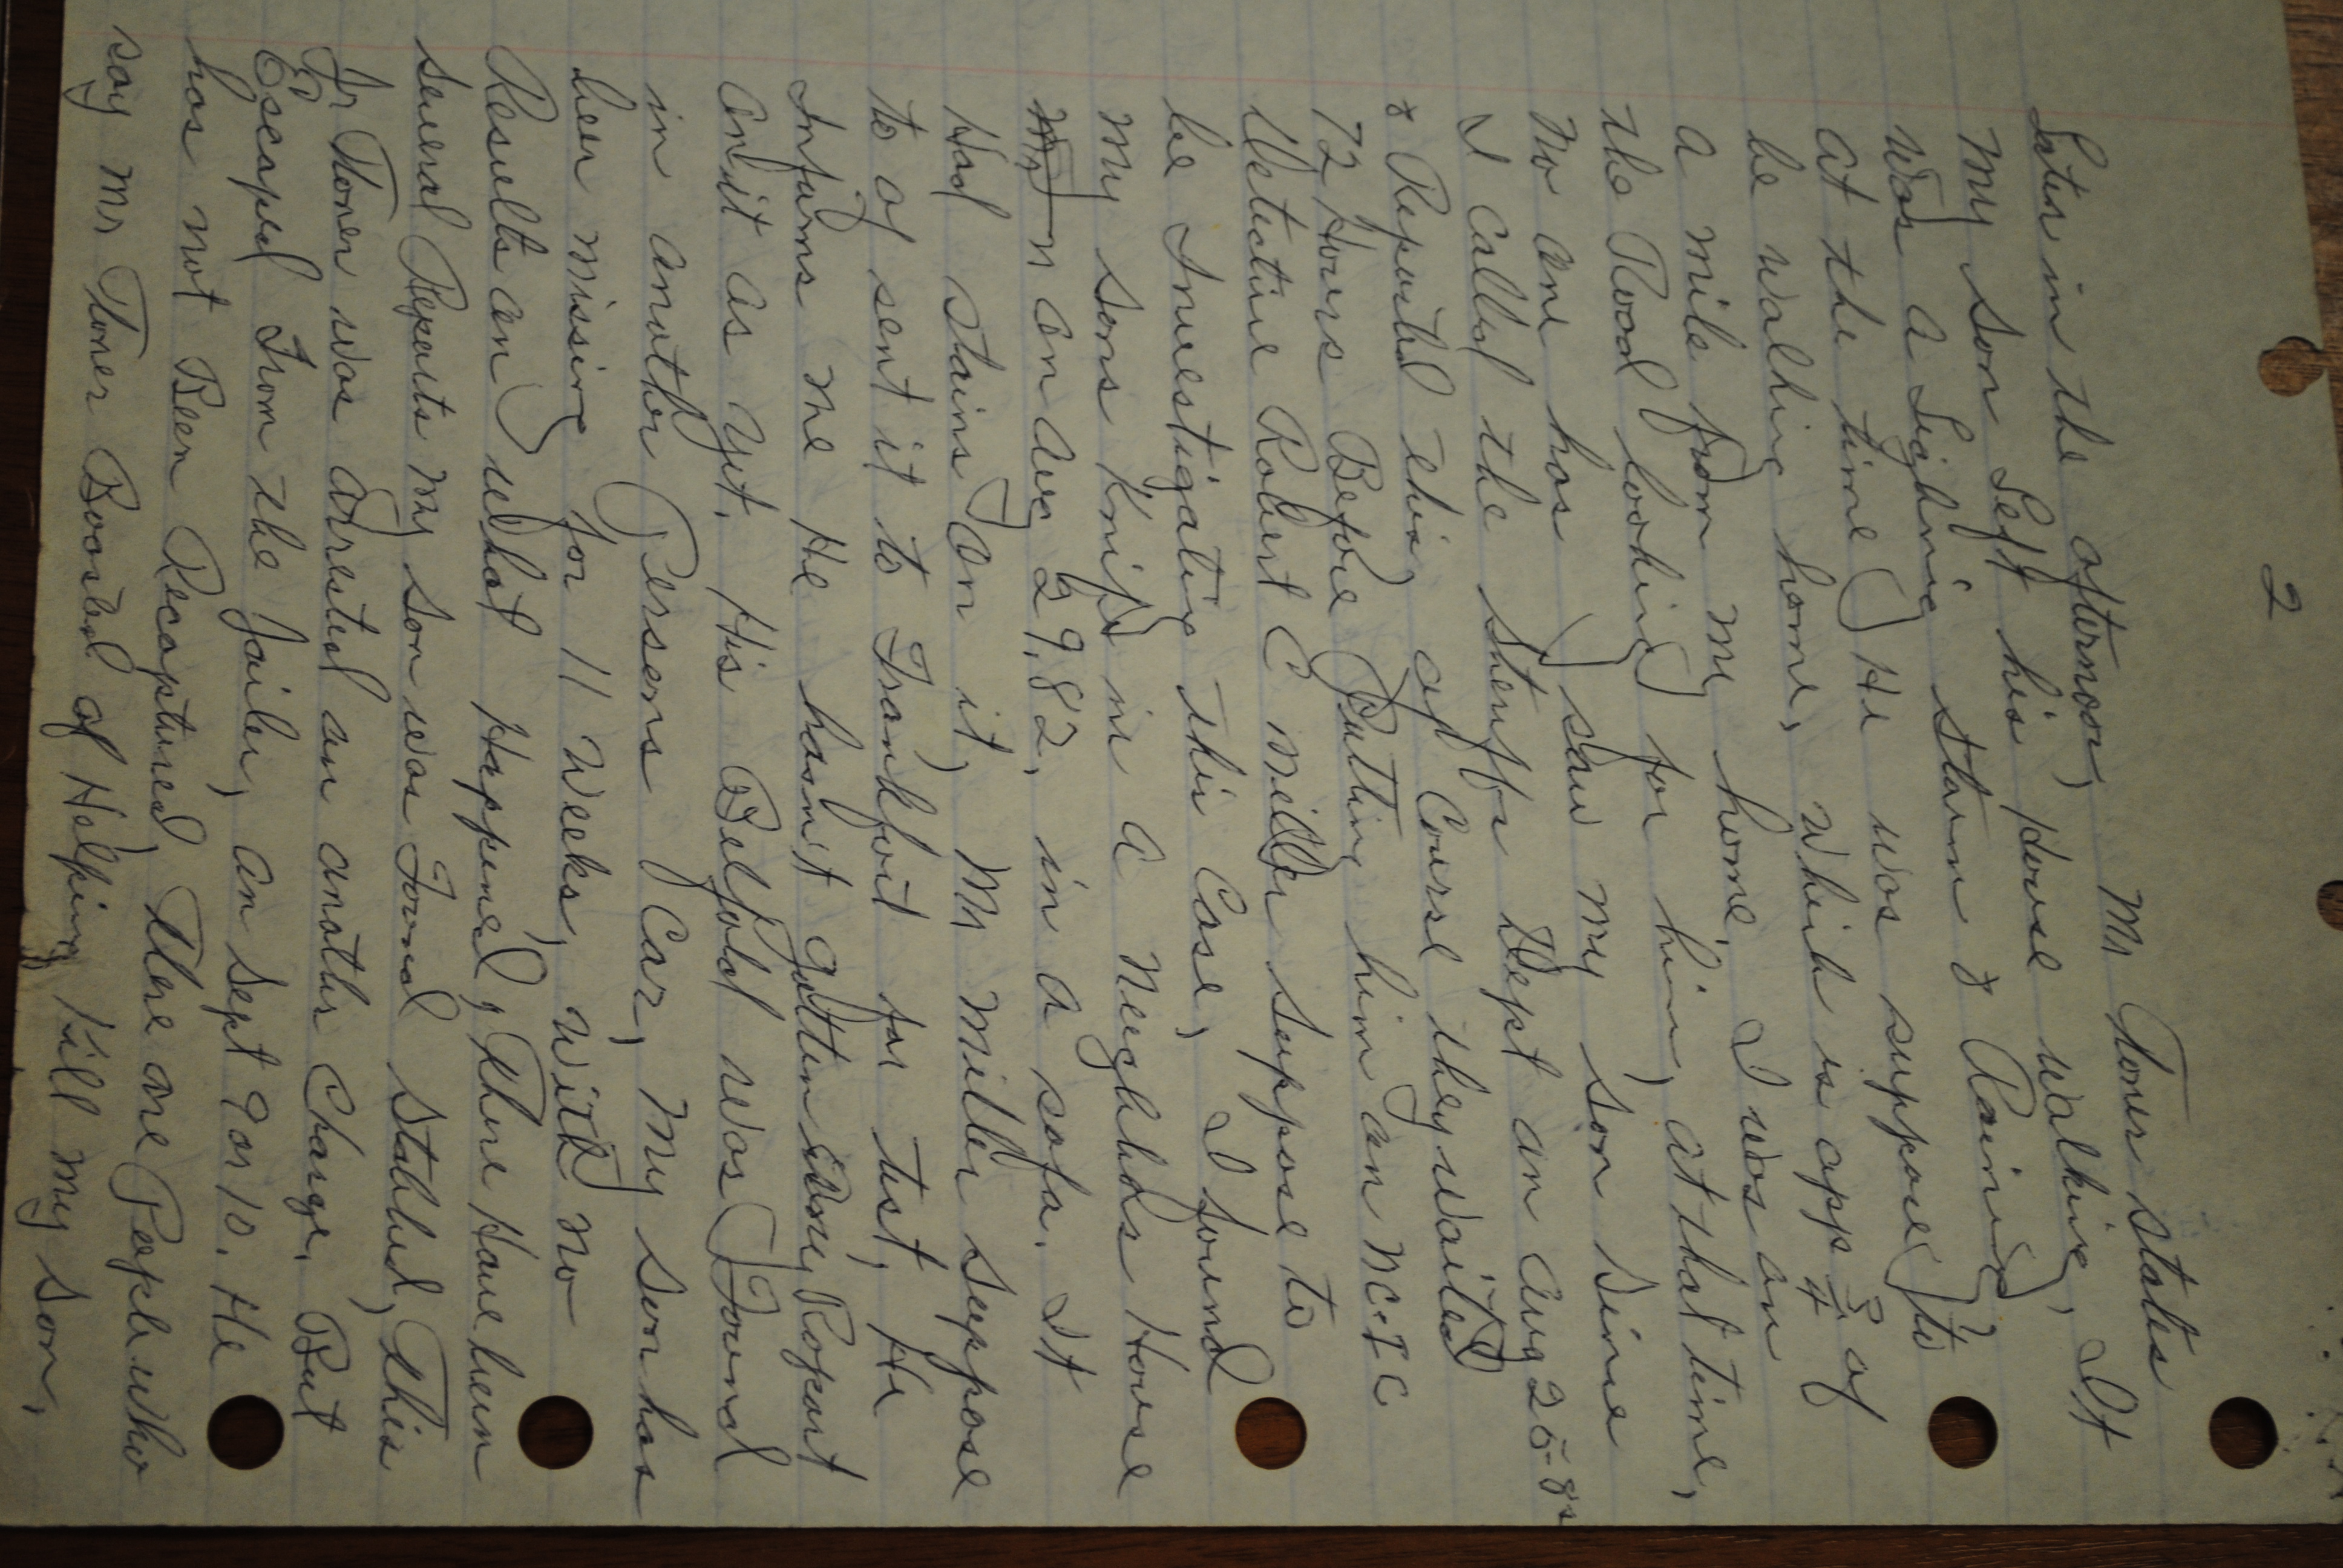 2
Later in the afternoon, Mr Toner states
my son Left his house walking, It
was a Lighting storm & Raining
at the time, He was suppose to
be walking home, which is app 3/4 of
a mile from my home, I was on
the Road looking for him, at that time,
no one has saw my son since
I called the Sheriffs Dept on Aug 26-82
& Reported this, of Course they waited
72 Hours Before Putting him on NCIC
Detective Robert C Miller suppose to
be Investigating this Case, I found
my sons Knife in a Neighbors House
on Aug 29, 82, in a sofa. It
Had stains on it, Mr Miller suppose
to of sent it to Frankfort for test, He
Informs me He hasn't gotten any Report
on it as yet, His Belfold was Found
in another Persons Car, my son has
been missing for 11 weeks, with no
Results on what Happened, There Have been
several Reports my son was Found stabbed, This
Jr Toner was arrested on another Charge, But
Escaped From the Jailer, on Sept 9 or 10. He
has not Been Recaptured, There are People who
say Mr Toner Boasted of Helping Kill my son,